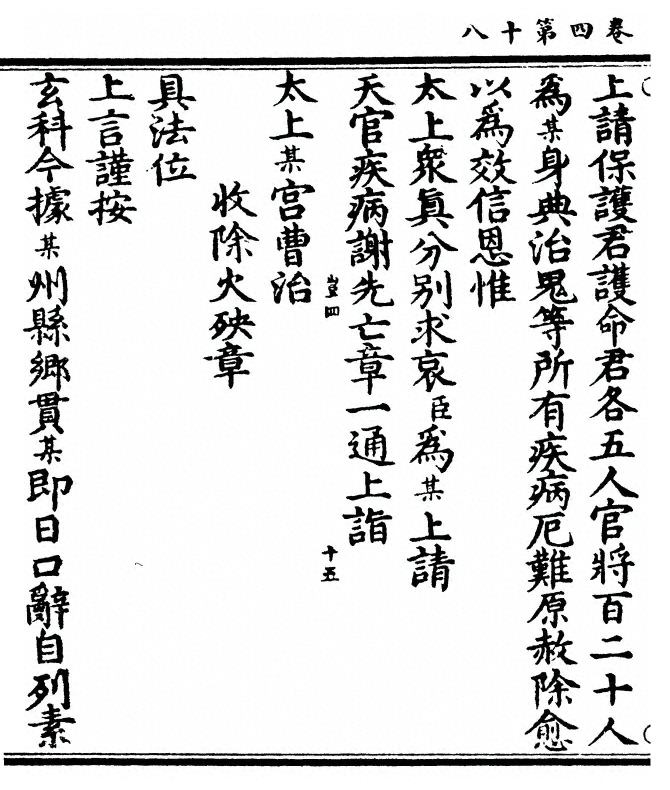 卷第四十八
上請保護君護命君各五人官將百二十人
為某身典治鬼等所有疾病厄難原赦除愈
以為效信恩惟
太上衆真分別求哀臣為某上請
天官疾病謝先亡章一通上詣
豈四
十五
太上某宫曹治
收除火殃章
具法位
上言謹按
玄科今據某州縣鄉貫某即日口辭自列素